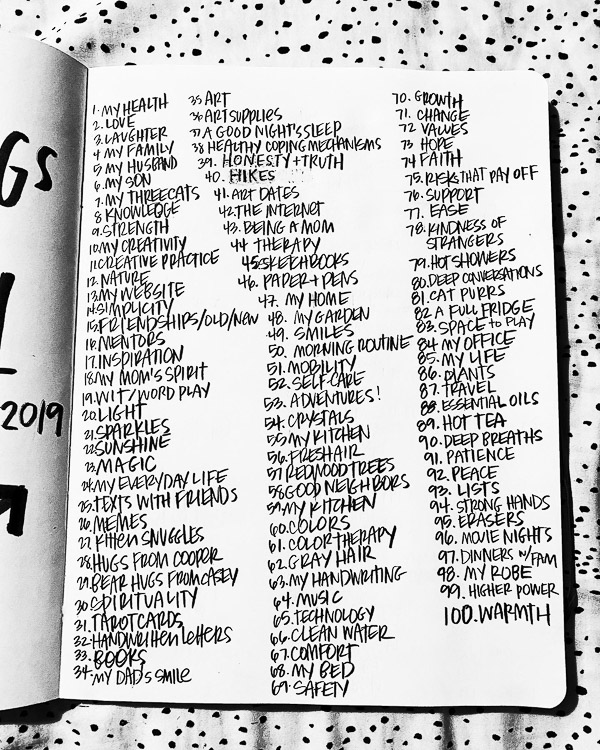 GS
2019
1. MY HEALTH
2. LOVE
3. LAUGHTER
4 MY FAMILY
5 MY HUSBAND
6. MY SON
7. MY THREE CATS
8 KNOWLEDGE
9. STRENGTH
10. MY CREATIVITY
11. CREATIVE PRACTICE
12. NATURE
13. MY WEBSITE
14. SIMPLICITY
15. FRIENDSHIPS/OLD/NEW
16. MENTORS
17. INSPIRATION
18. MY MOM'S SPIRIT
19. WIT/WORD PLAY
20. LIGHT
21. SPARKLES
22. SUNSHINE
23. MAGIC
24. MY EVERYDAY LIFE
25. TEXTS WITH FRIENDS
26. MEMES
27. KITTEN SNUGGLES
28. HUGS FROM COOPER
29. BEAR HUGS FROM CASEY
30. SPIRITUALITY
31. TAROT CARDS
32. HANDWRITTEN LETTERS
33. BOOKS
34. MY DAD'S SMILE
35 ART
36 ART SUPPLIES
37 A GOOD NIGHT'S SLEEP
38 HEALTHY COPING MECHANISMS
39. HONESTY + TRUTH
40. HIKES
41. ART DATES
42. THE INTERNET
43. BEING A MOM
44 THERAPY
45. SKETCHBOOKS
46. PAPER + PENS
47. MY HOME
48. MY GARDEN
49. SMILES
50. MORNING ROUTINE
51. MOBILITY
52. SELF-CARE
53. ADVENTURES!
54. CRYSTALS
55. MY KITCHEN
56. FRESH AIR
57 REDWOOD TREES
58 GOOD NEIGHBORS
59. MY KITCHEN
60. COLORS
61. COLOR THERAPY
62. GRAY HAIR
63. MY HANDWRITING
64. MUSIC
65. TECHNOLOGY
66. CLEAN WATER
67. COMFORT
68. MY BED
69. SAFETY
70. GROWTH
71. CHANGE
72 VALUES
73 HOPE
74 FAITH
75. RISKS THAT PAY OFF
76. SUPPORT
77. EASE
78. KINDNESS OF
STRANGERS
79. HOT SHOWERS
80. DEEP CONVERSATIONS
81. CAT PURRS
82 A FULL FRIDGE
83. SPACE TO PLAY
84 MY OFFICE
85. MY LIFE
86. PLANTS
87. TRAVEL
88. ESSENTIAL OILS
89. HOT TEA
90. DEEP BREATHS
91. PATIENCE
92. PEACE
93. LISTS
94. STRONG HANDS
95. ERASERS
96. MOVIE NIGHTS
97. DINNERS W/FAM
98. MY ROBE
99. HIGHER POWER
100. WARMTH